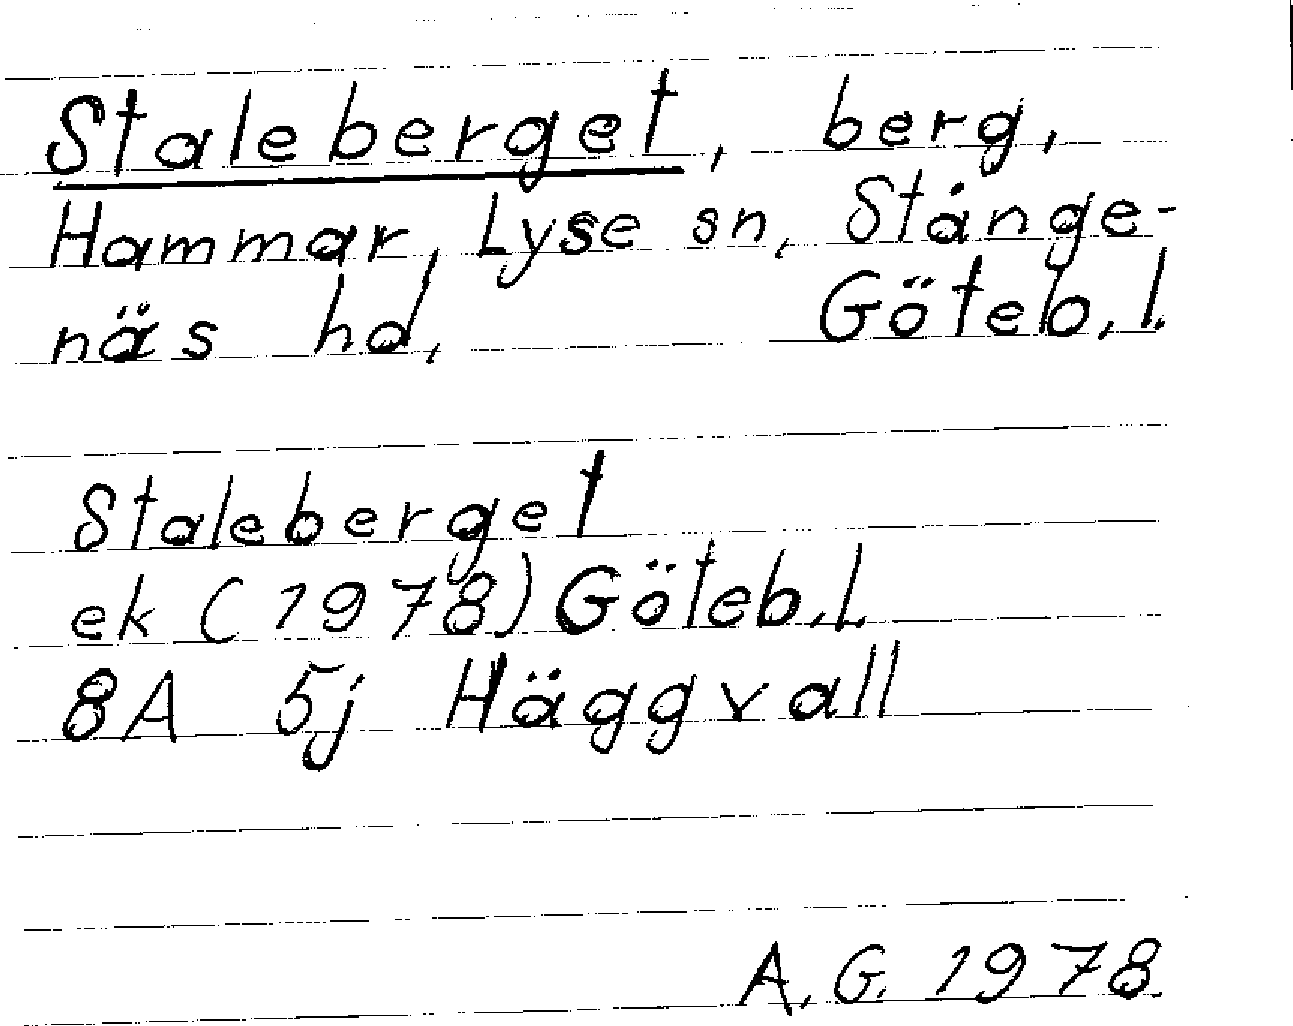 Staleberget, berg,
Hammar, Lyse sn, Stånge-
näs hd, Göteb. l.
Staleberget
ek (1978) Göteb. l.
8A 5j Häggvall
A. G. 1978.